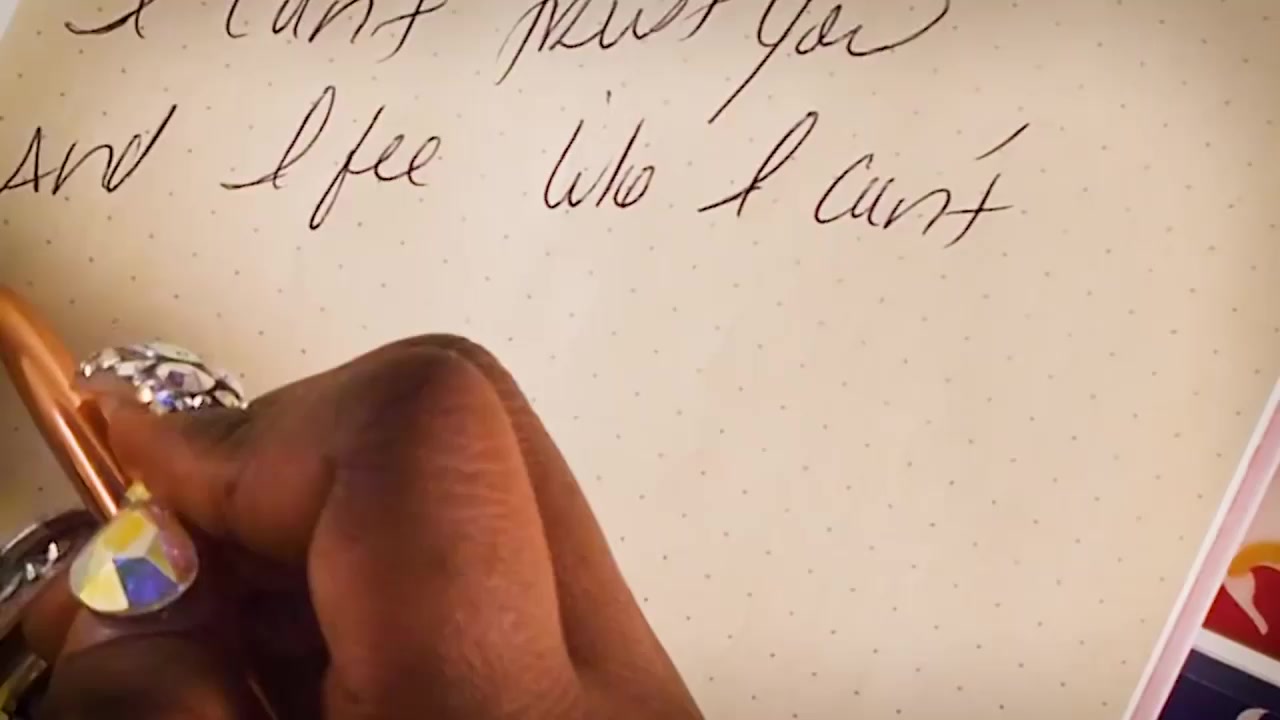 I can't trust You
And I fee like I can't